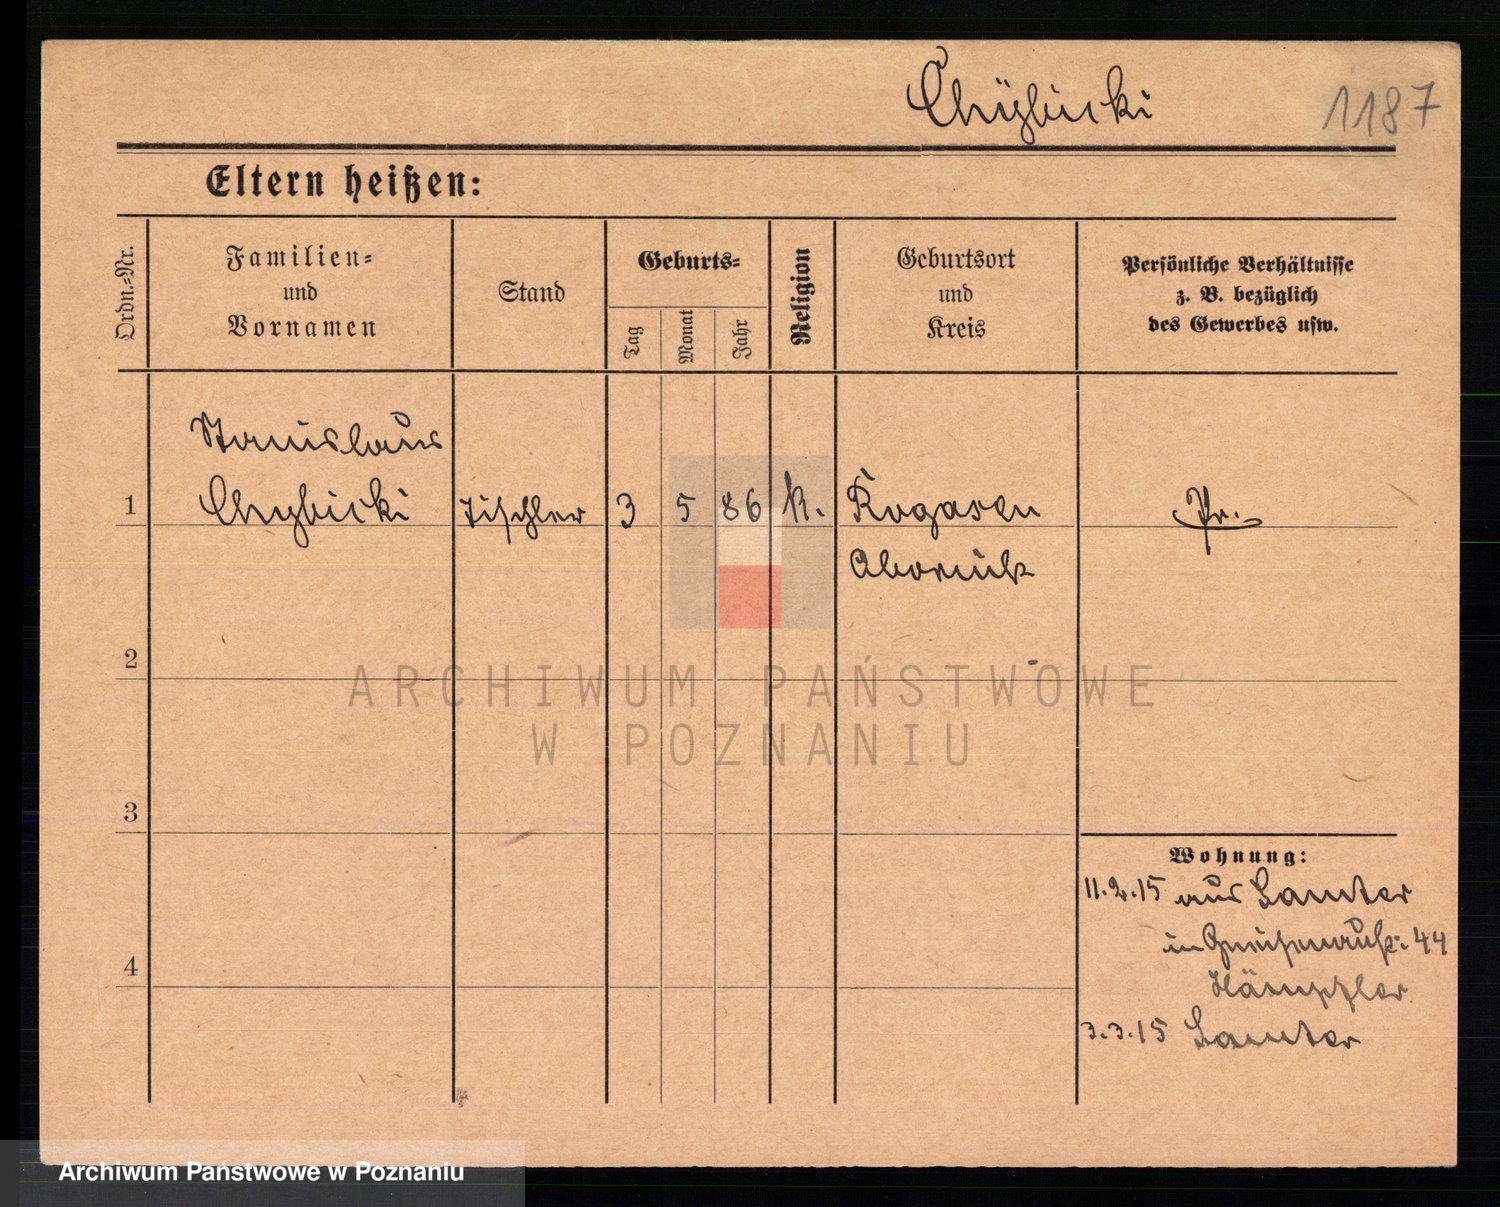 Chÿbicki
1187
Eltern heißen:
Ordn.-Nr.
Familien-
und
Vornamen
Stand
Geburts-
Tag
Monat
Jahr
Religion
Geburtsort
und
Kreis
Persönliche Verhältnisse
z. B. bezüglich
des Gewerbes usw.
Stanislaus
1 Chybicki Tischler 3 5 86 k. Rogasen Pr.
Obornik
2
3
4
Wohnung:
11.2.15 aus Samter
in Gneisenaustr. 44
3.3.15 Samter
ARCHIWUM PAŃSTWOWE
W POZNANIU
Archiwum Państwowe w Poznaniu